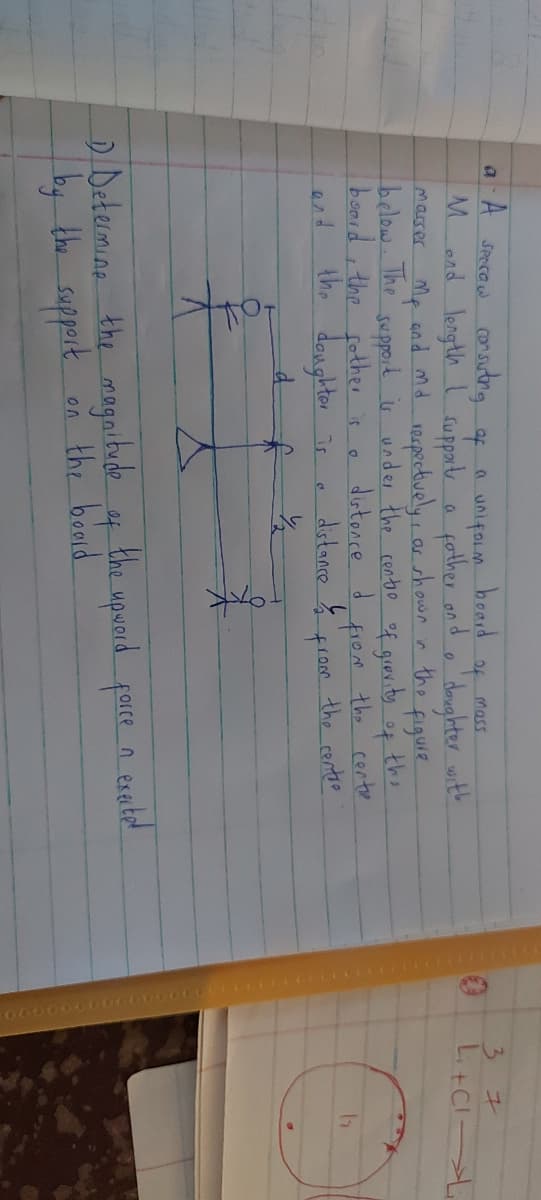 a. A seesaw consisting of a uniform board of mass
M and length l supports a father and a daughter with
masses mf and md respectively, as shown in the figure
below. The support is under the centre of gravity of the
board, the father is a distance d from the centre
and the daughter is a distance l/2 from the centre.
d l/2
1) Determine the magnitude of the upward force n exerted
by the support on the board
3 7
Li + Cl → L